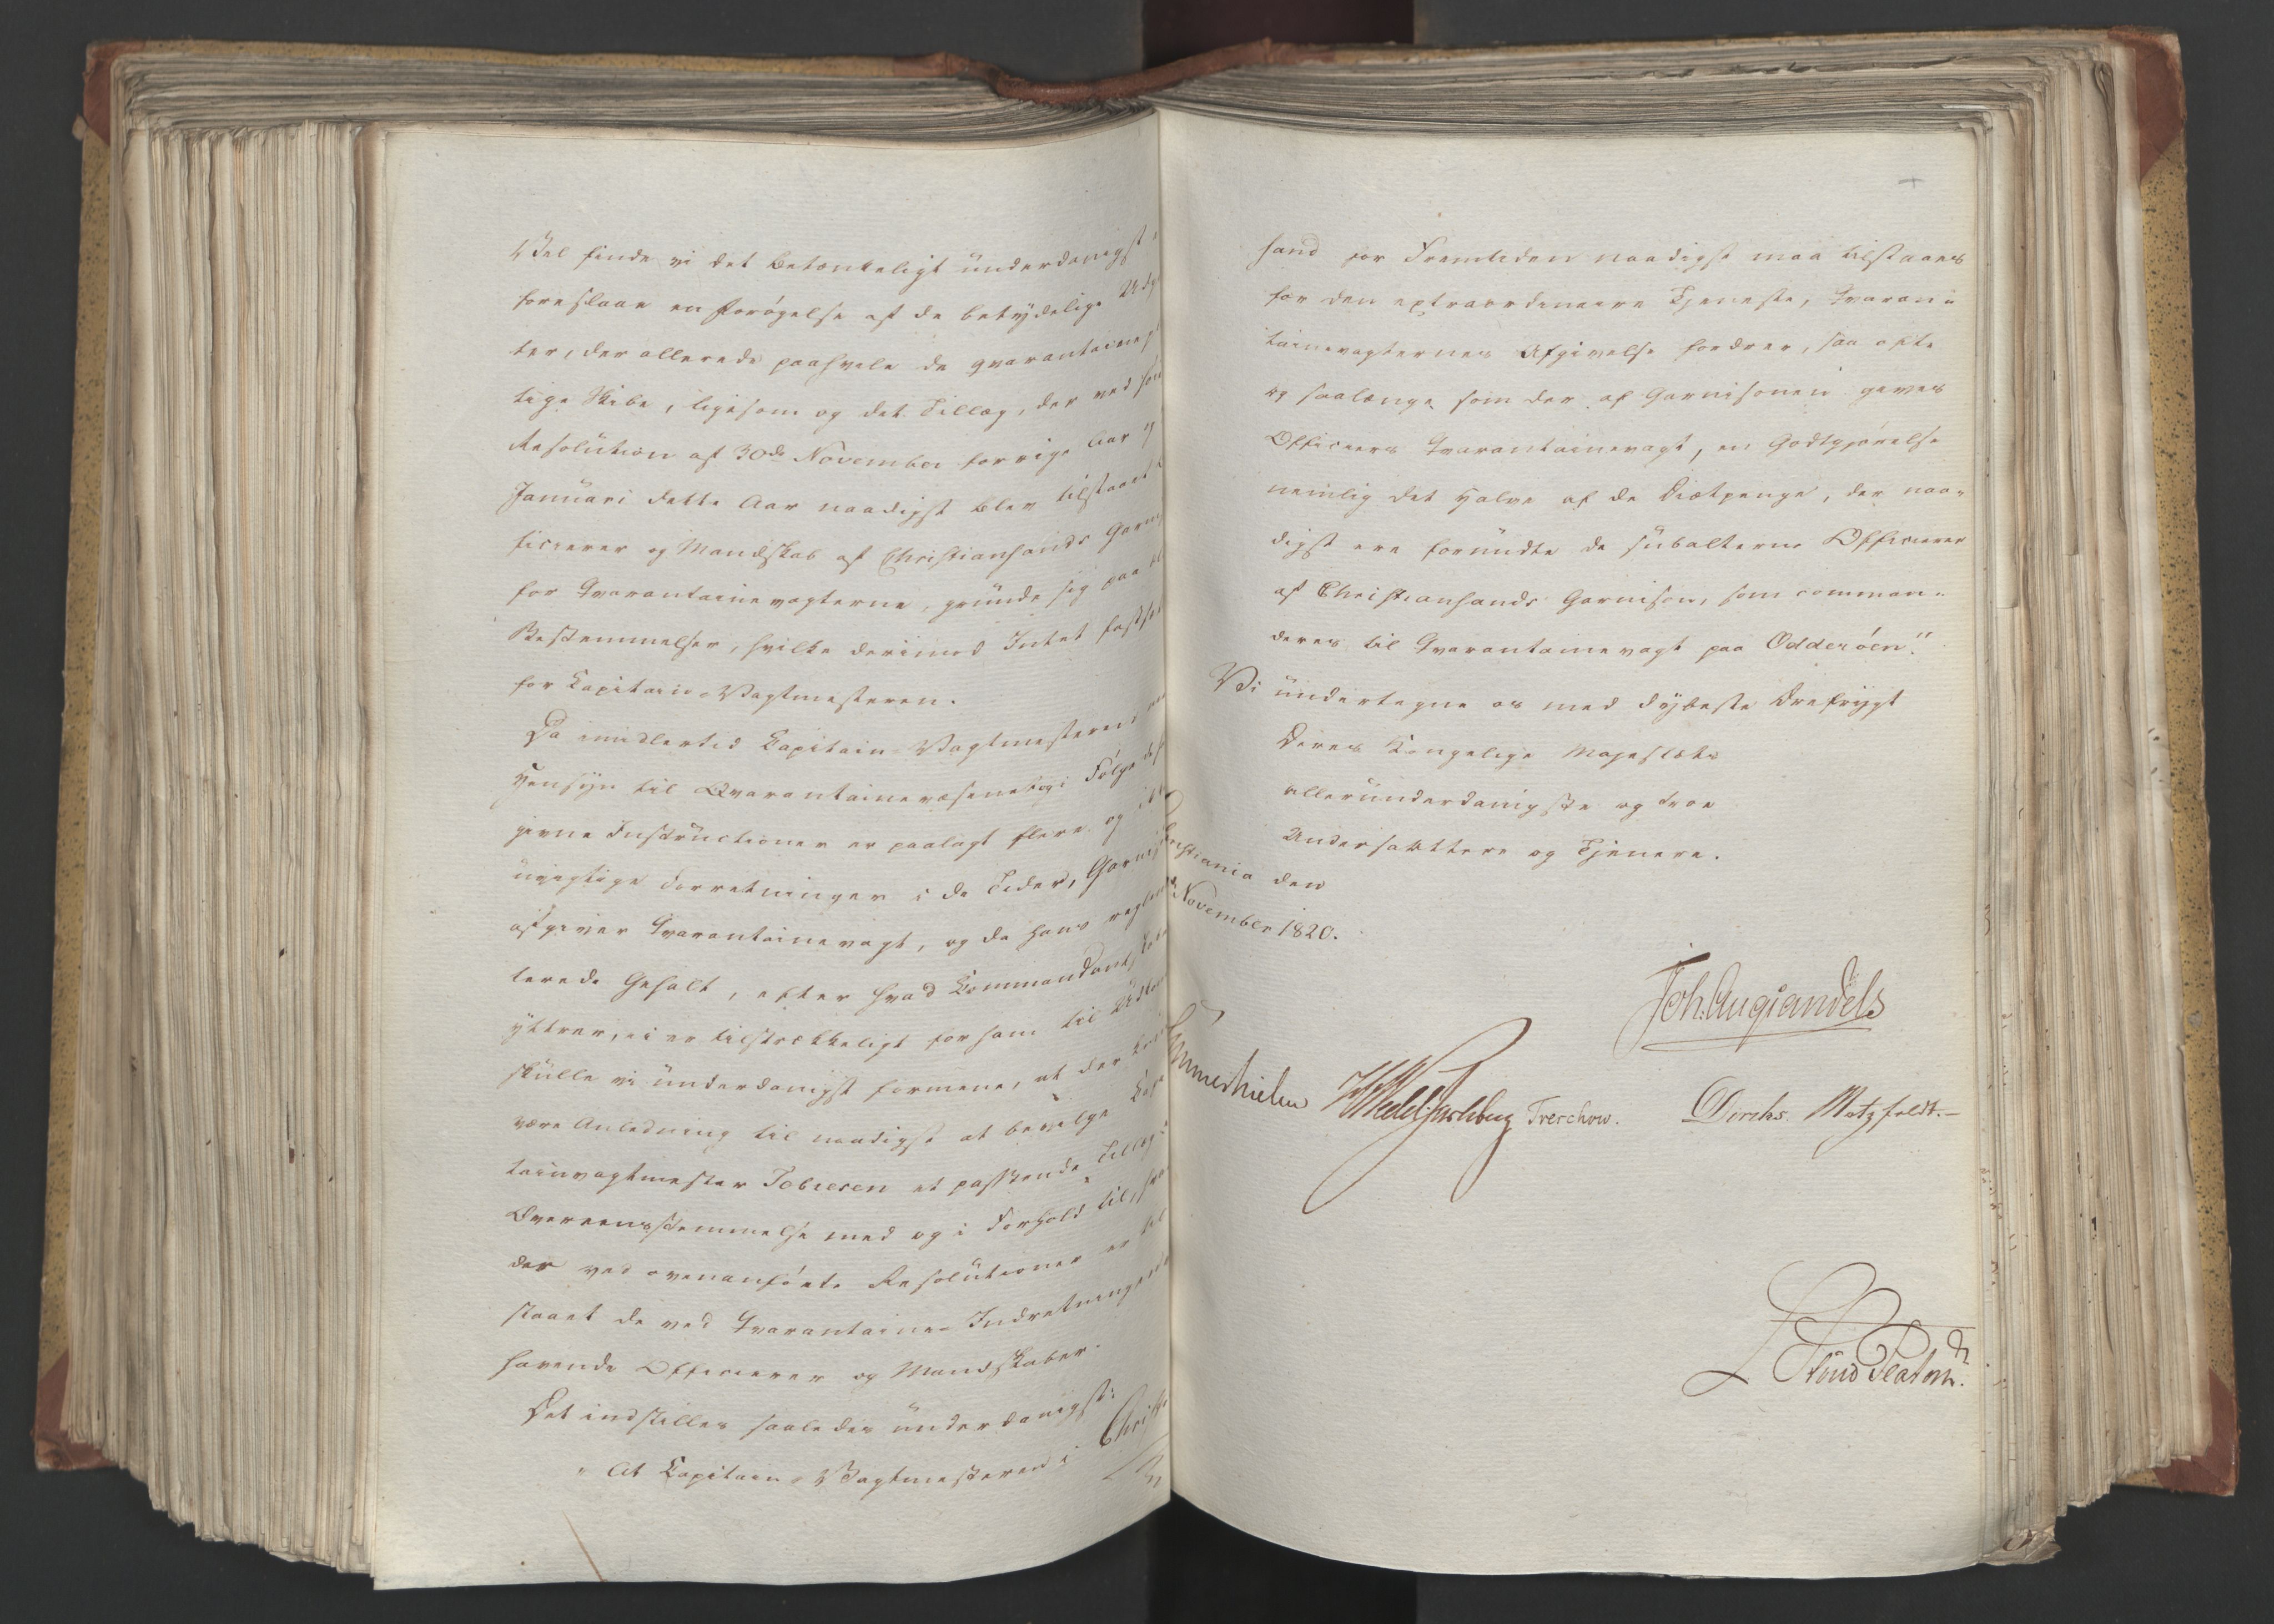 Vel finde vi det betænkeligt underdanigst
foreslaae en Forøgelse af de betydelige Udgif
ter, der allerede paahvile de qvarantaineplig
tige Skibe, ligesom og det Tillæg, der ved
Resolution af 30de November forrige Aar og
Januari dette Aar naadigst blev tilstaaet
ficierer og Mandskab af Christiansands Garni
for Qvarantainevagterne, grunde sig paa
Bestemmelser, hvilke derimod Intet fastsæt
for Capitain-Vagtmesteren.
Da imidlertid Capitain-Vagtmesteren
Hensyn til Qvarantainevæsenet og i Følge
givne Instructioner er paalagt flere og
uvigtige Forretninger i de Tider, Garnis
afgiver Qvarantainevagt, og da hans regle
terede Gehalt, efter hvad Commandantskabet
yttrer, ei er tilstrækkeligt for ham til
skulle vi underdanigst formene, at der
være Anledning til naadigst at bevilge Capi
tainvagtmester Tobiesen et passende Tillæg i
Overeensstemmelse med og i Forhold til, hvad
der ved ovenanførte Resolutioner er til
staaet de ved Qvarantaine-Indretningerne
havende Officierer og Mandskaber.
Det indstilles saaledes underdanigst:
"At Capitain-Vagtmesteren i Christi
sand for Fremtiden naadigst maa tilstaaes
for den extraordinaire Tjeneste, Qvaran-
tainevagternes Afgivelse fordrer, saa ofte
og saalænge som der af Garnisonen gives
Officeers Qvarantainevagt, en Godtgjørelse
nemlig det Halve af de Diætpenge, der naa-
digst ere forundte de subalterne Officierer
af Christiansands Garnison, som comman-
deres til Qvarantainevagt paa Odderøen."
Vi undertegne os med dybeste Ærefrygt
Deres Kongelige Majestæts
allerunderdanigste og troe
Undersaattere og Tjenere.
Christiania den
November 1820.
Joh. Aug Sandels
Sommerhielm HWedel Jarlsberg Treschow. Diriks. Motzfeldt.